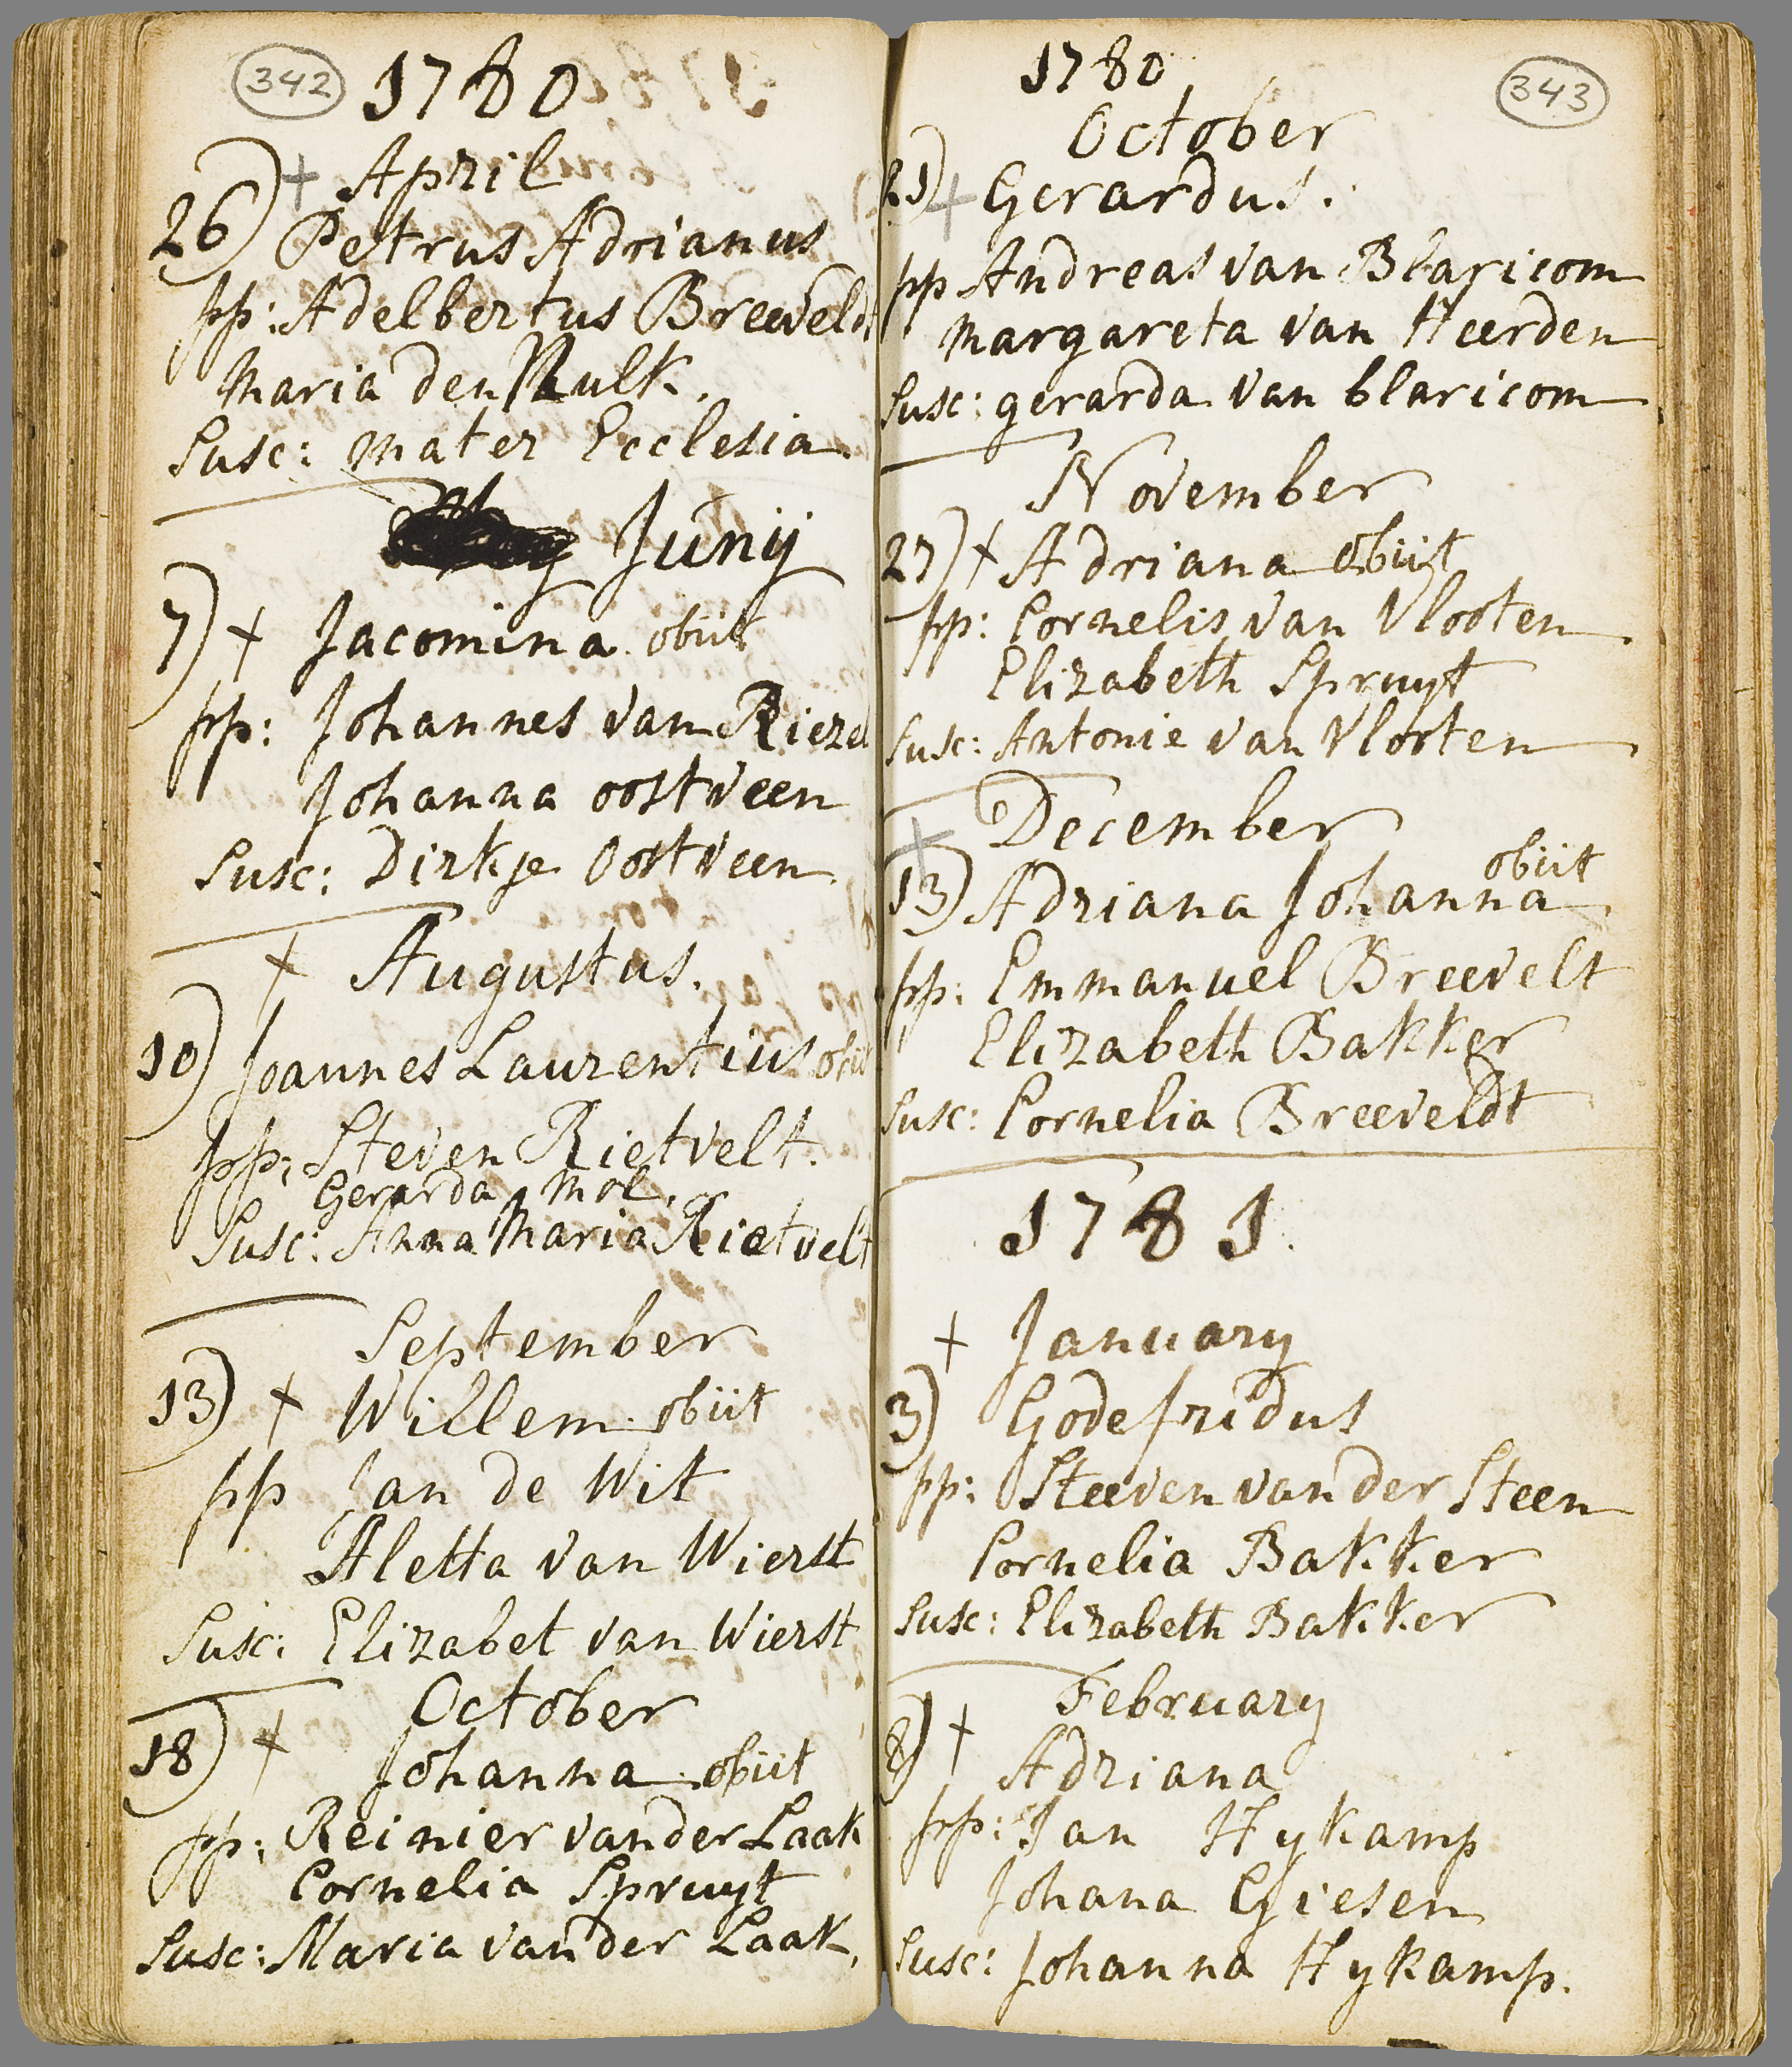 342 1780
+ April
26) Petrus Adrianus
pp: Adelbertus Breeveldt
Maria den Mulk.
Susc: mater Ecclesia.
Junij
7) + Jacomina obiit
pp: Johannes van Riezel
Johanna oostveen
Susc: Dirkje Oostveen
+ Augustus.
10) Joannes Laurentius obiit
pp: Steven Rietvelt.
Gerarda Mol.
Susc: Anna Maria Rietvelt
September
13) + Willem. obiit
pp Jan de Wit
Aletta van Wierst
Susc: Elizabet van Wierst
October
18) + Johanna. obiit
pp: Reinier van der Laak
Cornelia Spruyt
Susc: Maria van der Laak.
1780 343
October
21) + Gerardus.
pp Andreas van Blaricom
Margareta van Heerden
Susc: gerarda van blaricom
November
27) + Adriana obiit
pp: Cornelis van Vlooten
Elizabeth Spruyt
Susc: Antonie van Vlooten
+ December
obiit
13) Adriana Johanna
pp: Emmanuel Breevelt
Elizabeth Bakker
Susc: Cornelia Breeveldt
1781.
+ January
3) Godefridus
pp: Steeven van der Steen
Cornelia Bakker
Susc: Elizabeth Bakker
February
+
Adriana
pp: Jan Hykamp
Johana Giesen
Susc: Johanna Hykamp.